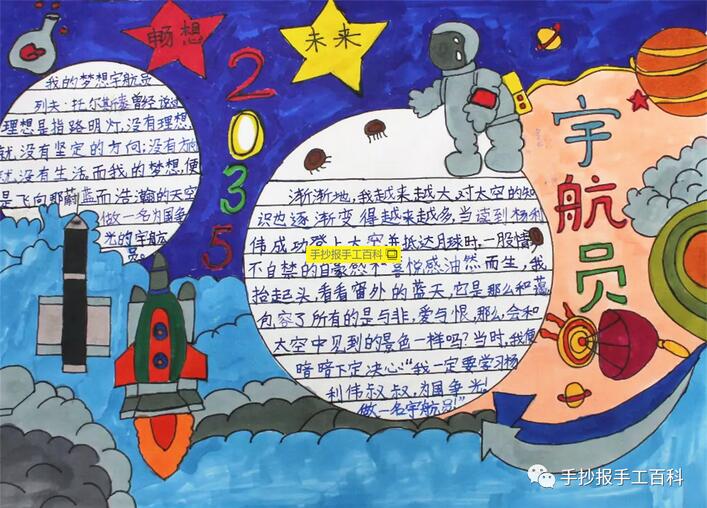 畅想
未来
2035
宇航员
我的梦想宇航员
列夫·托尔斯泰曾经说过
理想是指路明灯,没有理想,
就没有坚定的方向;没有方向
就没有生活,而我的梦想,便
是飞向那蔚蓝而浩瀚的天空
做一名为国争
光的宇航
员。
渐渐地,我越来越大,对太空的知
识也逐渐变得越来越多,当读到杨利
伟成功登上太空并抵达月球时,一股情
不自禁的自豪感和喜悦感油然而生,我
捡起头,看看窗外的蓝天,它是那么和蔼
包容了所有的是与非,爱与恨,那么,会和
太空中见到的景色一样吗?当时,我便
暗暗下定决心“我一定要学习杨
利伟叔叔,为国争光!
做一名宇航员!”
手抄报手工百科
手抄报手工百科